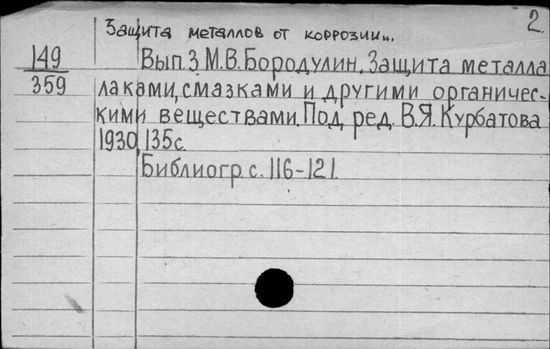 2.
Защита металлов от коррозии...
149
359
Вып. 3 М.В. Бородулин. Защита металла
лаками, смазками и другими органичес-
кими веществами. Под ред. В.Я. Курбатова
1930, 135с.
Библиогр. с. 116-121.